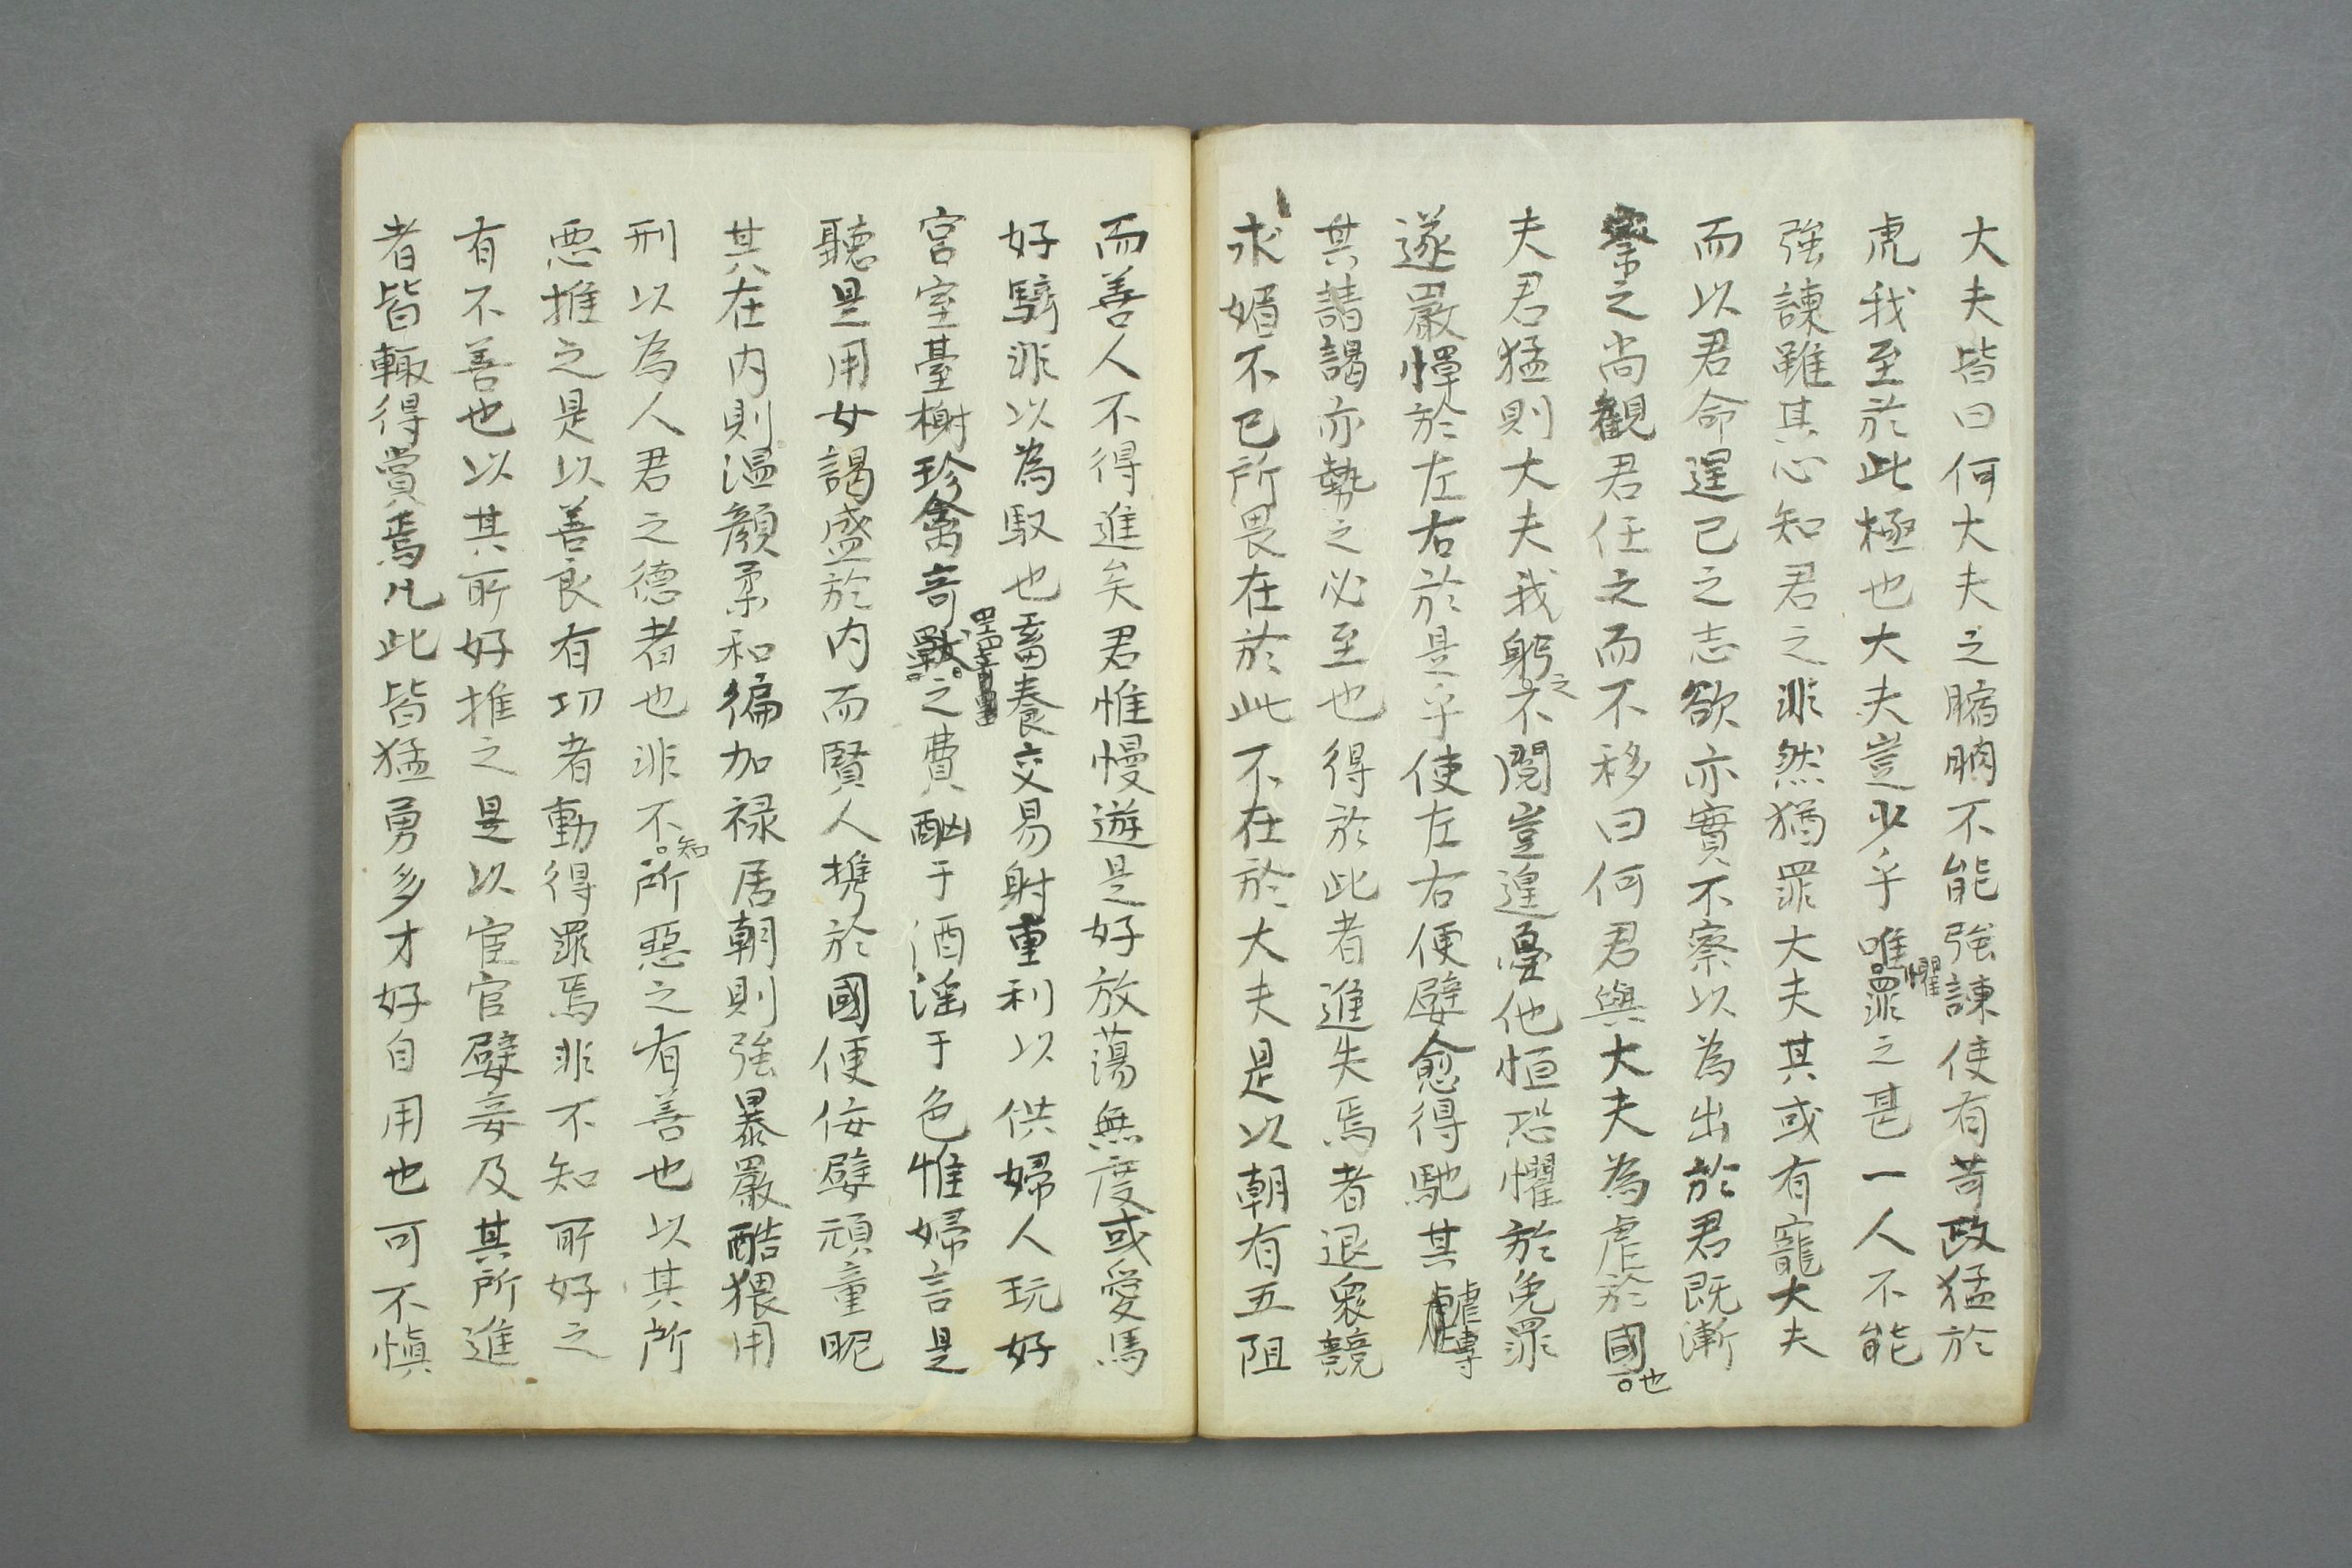 大夫皆曰何大夫之䐧朒不能強諫使有苛政猛於
虎我至於此極也大夫豈少乎唯懼罪之甚一人不能
強諫雖其心知君之非然猶罪大夫其或有寵大夫
而以君命逞已之志欲亦實不察以為出於君既漸
察之尚觀君任之而不移曰何君與大夫為虐於國也
夫君猛則大夫我躬之不閲豈遑憂他恒恐懼於免罪
遂嚴憚於左右於是乎使左右便嬖愈得馳其虐專
其請謁亦勢之必至也得於此者進失焉者退衆競
求媚不已所畏在於此不在於大夫是以朝有五阻
而善人不得進矣君惟慢遊是好放蕩無度或愛馬
好騎非以為馭也畜養交易射重利以供婦人玩好
宮室臺榭珍禽奇獸之費酗于酒淫于色惟婦言是
聽是用女謁盛於内而賢人携於國便侫嬖頑童昵
其在内則温顔柔和徧加禄居朝則強暴嚴酷猥用
刑以為人君之德者也非不知所惡之有善也以其所
悪推之是以善良有功者動得罪焉非不知所好之
有不善也以其所好推之是以宦官嬖妾及其所進
者皆輙得賞焉凡此皆猛勇多才好自用也可不慎